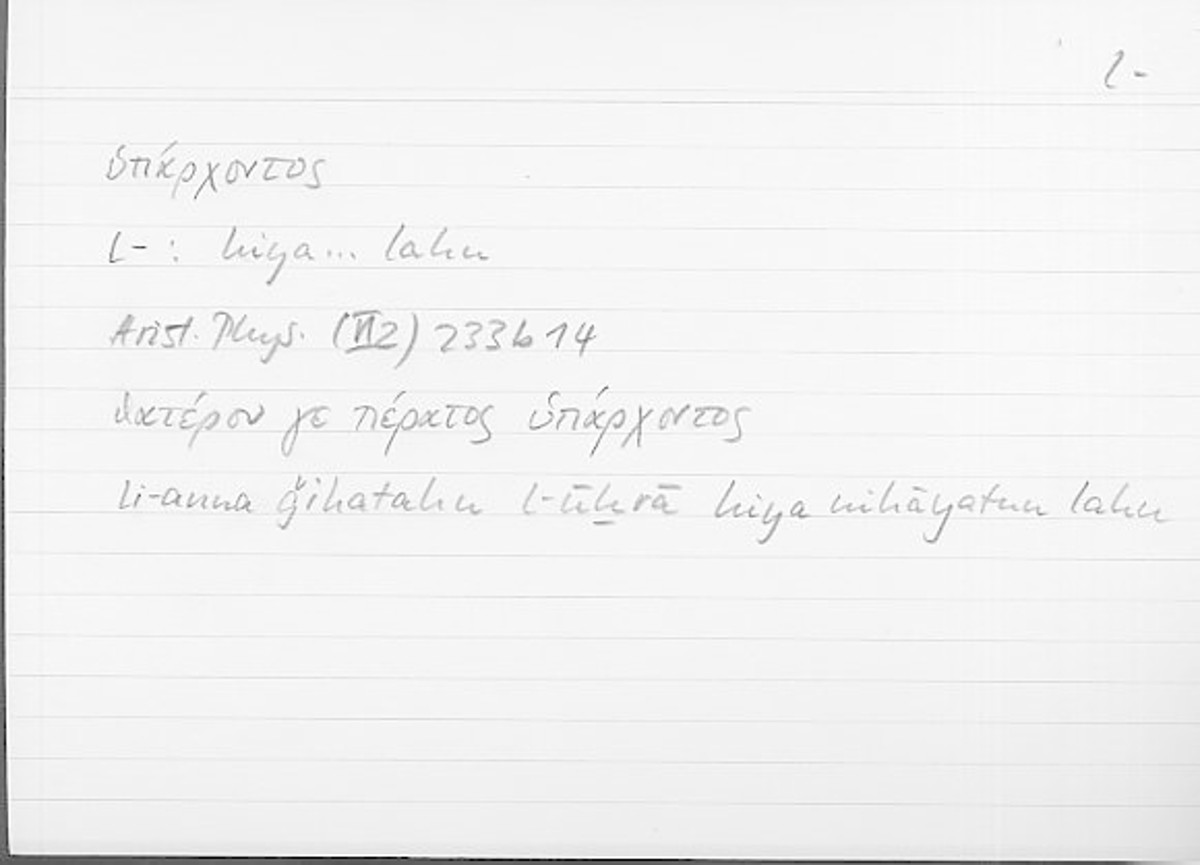 l-
ὑπάρχοντος
l- : hiya... lahu
Arist. Phys. (VI2) 233b14
θατέρου γε πέρατος ὑπάρχοντος
li-anna ǧihatahu l-ūḫrā hiya nihāyatun lahu